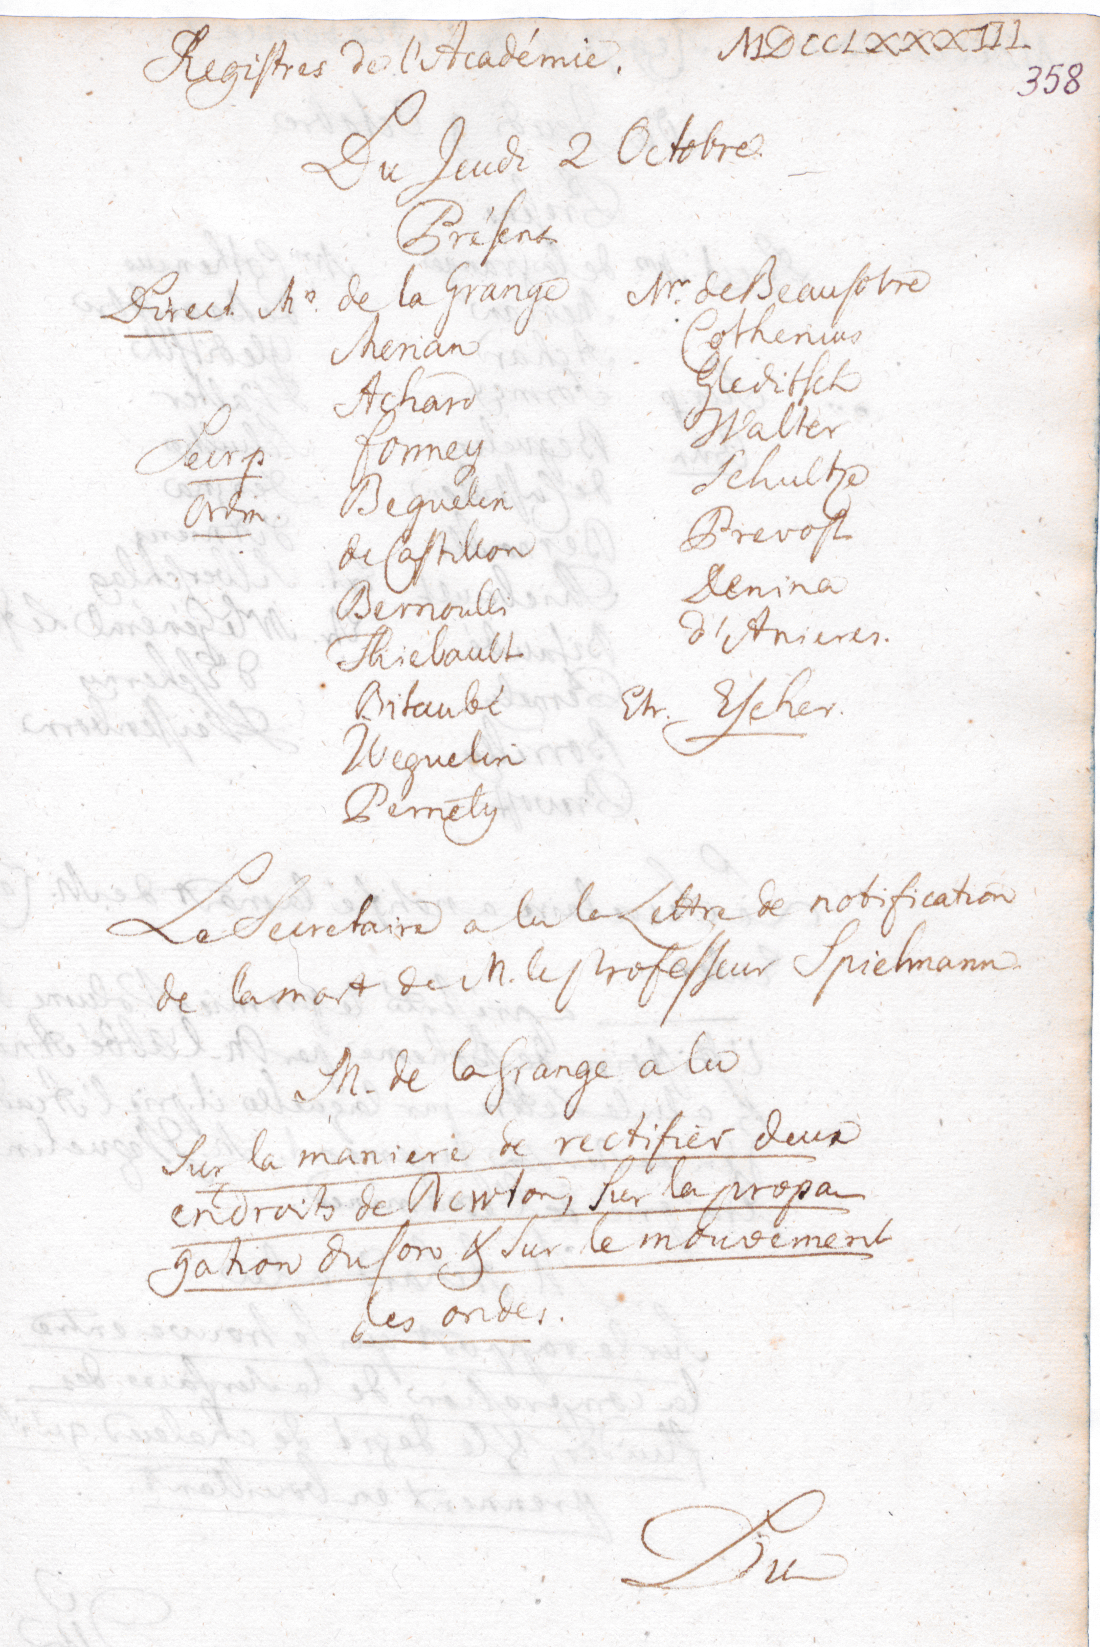 Registres de l'Académie.
MDCCLXXXIII.
358
Du Jeudi 2 Octobre.
Présens
Direct. Mrs. de la Grange
Merian
Achard
Secr p Formey
Ordin. Beguelin
de Castillon
Bernoulli
Thiebault
Bitaubé
Weguelin
Pernety
Mrs. de Beausobre
Cothenius
Gleditsch
Walter
Schultze
Prevost
Denina
d'Anieres.
Etr. Escher.
Le Secretaire a lu la Lettre de notification
de la mort de M. le professeur Spielmann.
M. de la Grange a lu
Sur la maniere de rectifier deux
endroits de Newton, sur la propa
gation du son & sur le mouvement
des ondes.
Du